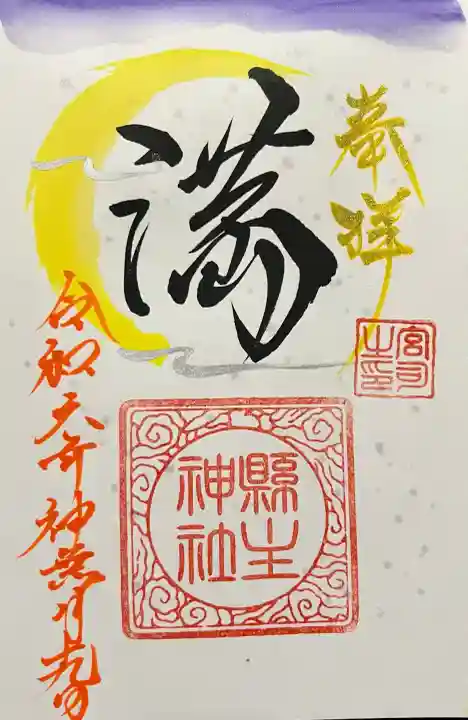 奉拝
宮司
之印
満
縣主
神社
令和六年神無月九日